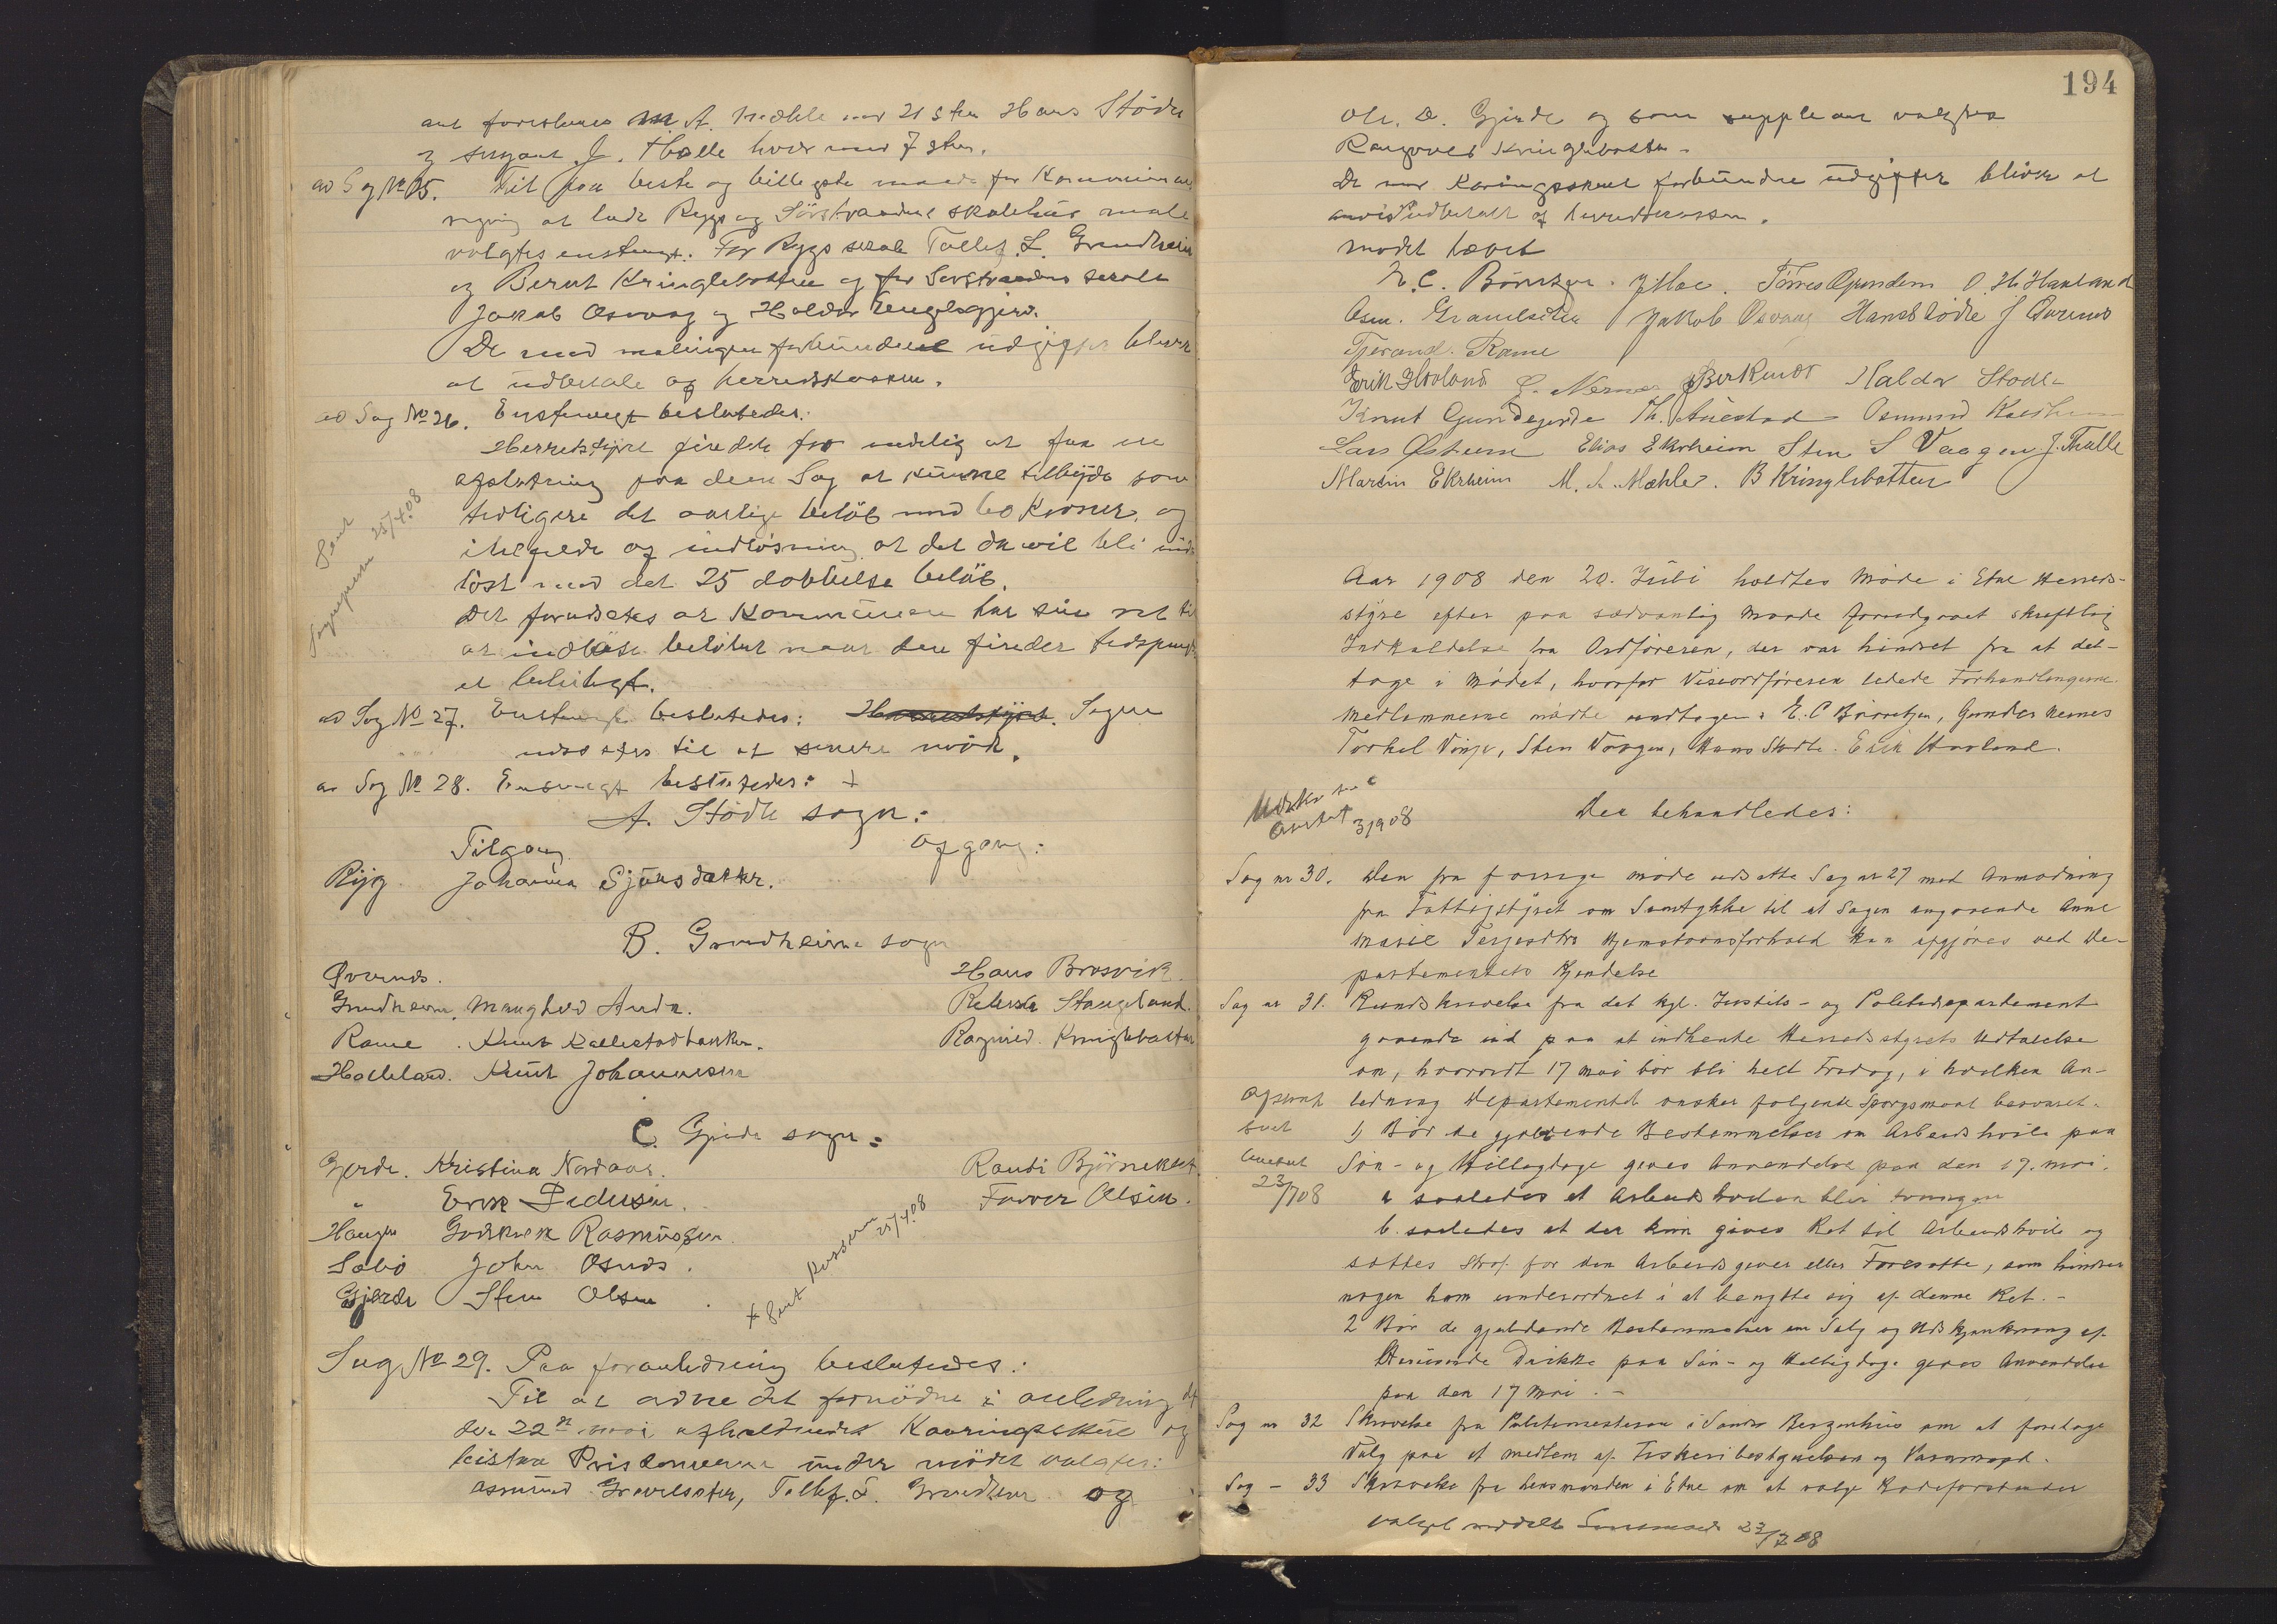 M. A. Mæhle med 21 stem Hans Stödle
og J. Thalle hver med 7 stm.
ad Sag No 25. Til paa beste og billigste maade for Kommunens
regning at lade Rygs og Sörstrandens skolehus male
valgtes enstemigt. For Rygs skole Tollef. L. Grindheim
og Berent Kringlebotten og for Sörstrandens skole
Jakob Osvaag og Haldor Englagjerd.
De med malingen forbundene udgifter bliver
at udbetale af herredskassen.
ad Sag No 26. Enstemigt beslutedes:
Herredstyret finder for at faa en
afslutning paa denne Sag at kunne tilbyde som
tidligere det aarlige belöb med 60 Kroner, og
itilfælde af indlösning at det da vil bli ind-
löst med det 25 dobbelte belöb.
Det forudsetes at Kommunen har sin ret til
at indlöse belöbet naar den finder tidspunktet
er beleiligt.
Sent
Sognepresten 25/4.08
ad Sag No 27. Enstemigt beslutedes: Herredstyret. Sagen
udsættes til et senere möde.
ad Sag No 28. Enstemigt beslutedes: +
A. Stödle sogn:
Tilgang. Afgang:
Ryg Johanna Sjursdatter.
B. Grindheims sogn
Øvernes. Hans Brosvik.
Grindheim. Manghed Anda. Stangeland.
Rame. Knut Kallestadbakken. Kringlebotten
Hadeland. Knut Johannesen
C. Gjerde sogn:
Gjerde. Kristina Nordaas. Randi
" Erik Pedersen. Olsen.
Haugen Rasmussen.
Sæbö John Osnes.
Gjerde Sten Olsen.
+ Sent Kassereren 25/4.08
Sag No 29. Paa foranledning beslutedes:
Til at ordne det fornödne i anledning af
den 22de mai afholdendes Kaaringsskue og
bistaa Prisdommerne under mödet valgtes:
Asmund Gravelseter, Tollef. L. Grindheim og
194
Ole. D. Gjerde og som suppleant valgtes
Kringlebotten.
De med Karingsskuet forbundne udgifter bliver at
anvist udbetalt af herredskassen.
mödet hævet
E. C. Börretzen. J Moe. Törres Grindem O. H. Haaland
Asm. Gravelseter Jakob Osvaag Hans Stödle J Övernes
Tjerand. Rame
Erik Håvland G. Nernes Haldor Stödle
Knut Grindegjerde Th. Auestad Osmund Kaldheim
Lars Østrem Elias Ekrheim Sten S Vaagen J. Thalle
Martin Ekrheim M. A. Mæhle. B Kringlebotten
Aar 1908 den 20. Juli holdtes Möde i Etne Herreds-
styre efter paa sædvanlig Maade foreudgaaet skriftlig
Indkaldelse fra Ordföreren, der var hindret fra at del-
tage i Mödet, hvorfor Viseordföreren ledede Forhandlingerne.
Medlemmerne mödte undtagen: E. C Börretzen, Gunder Nernes
Torkel Vinje, Sten Vaagen, Hans Stödle. Erik Haaland.
3/9 08
Der behandledes:
Sag nr 30. Den fra forrige möde udsatte Sag nr 27 med Anmodning
fra Fattigstyret om Samtykke til at Sagen angaaende Anne
Marie Terjesdtrs Hjemstavnsforhold kan afgjöres ved De-
partementets Kjendelse
Sag nr 31. Rundskrivelse fra det kgl. Justits- og Politidepartement
gaaende ud paa at indhente Herredsstyrets Udtalelse
om, hvorvidt 17 mai bör bli helt Fredag, i hvilken An-
ledning Departementet önsker fölgende Spörgsmaal besvaret.
1) Bör de gjældende Bestemmelser om Arbeidshvile paa
Sön- og Helligdage gives Anvendelse paa den 17. mai.
Afskrift
sent
23/7 08
a saaledes at Arbeidshvilen blir tvungen
b. saaledes at der kun gives Ret til Arbeidshvile og
sættes Straf for den Arbeidsgiver eller Foresatte, som hindrer
nogen ham underordnet i at benytte sig af denne Ret.-
2 Bör de gjældende Bestemmelser om Salg og Udskjænkning af
Berusende Drikke paa Sön- og Helligdage gives Anvendelse
paa den 17 Mai.-
Sag nr 32 Skrivelse fra Politimesteren i Söndre Bergenhus om at foretage
Valg paa et medlem af Fiskeribestyrelsen og Varamand.
Sag - 33 Skrivelse fra lensmanden i Etne om at vælge Rodeforstander
valget meddelt Lensmand 23/7 08